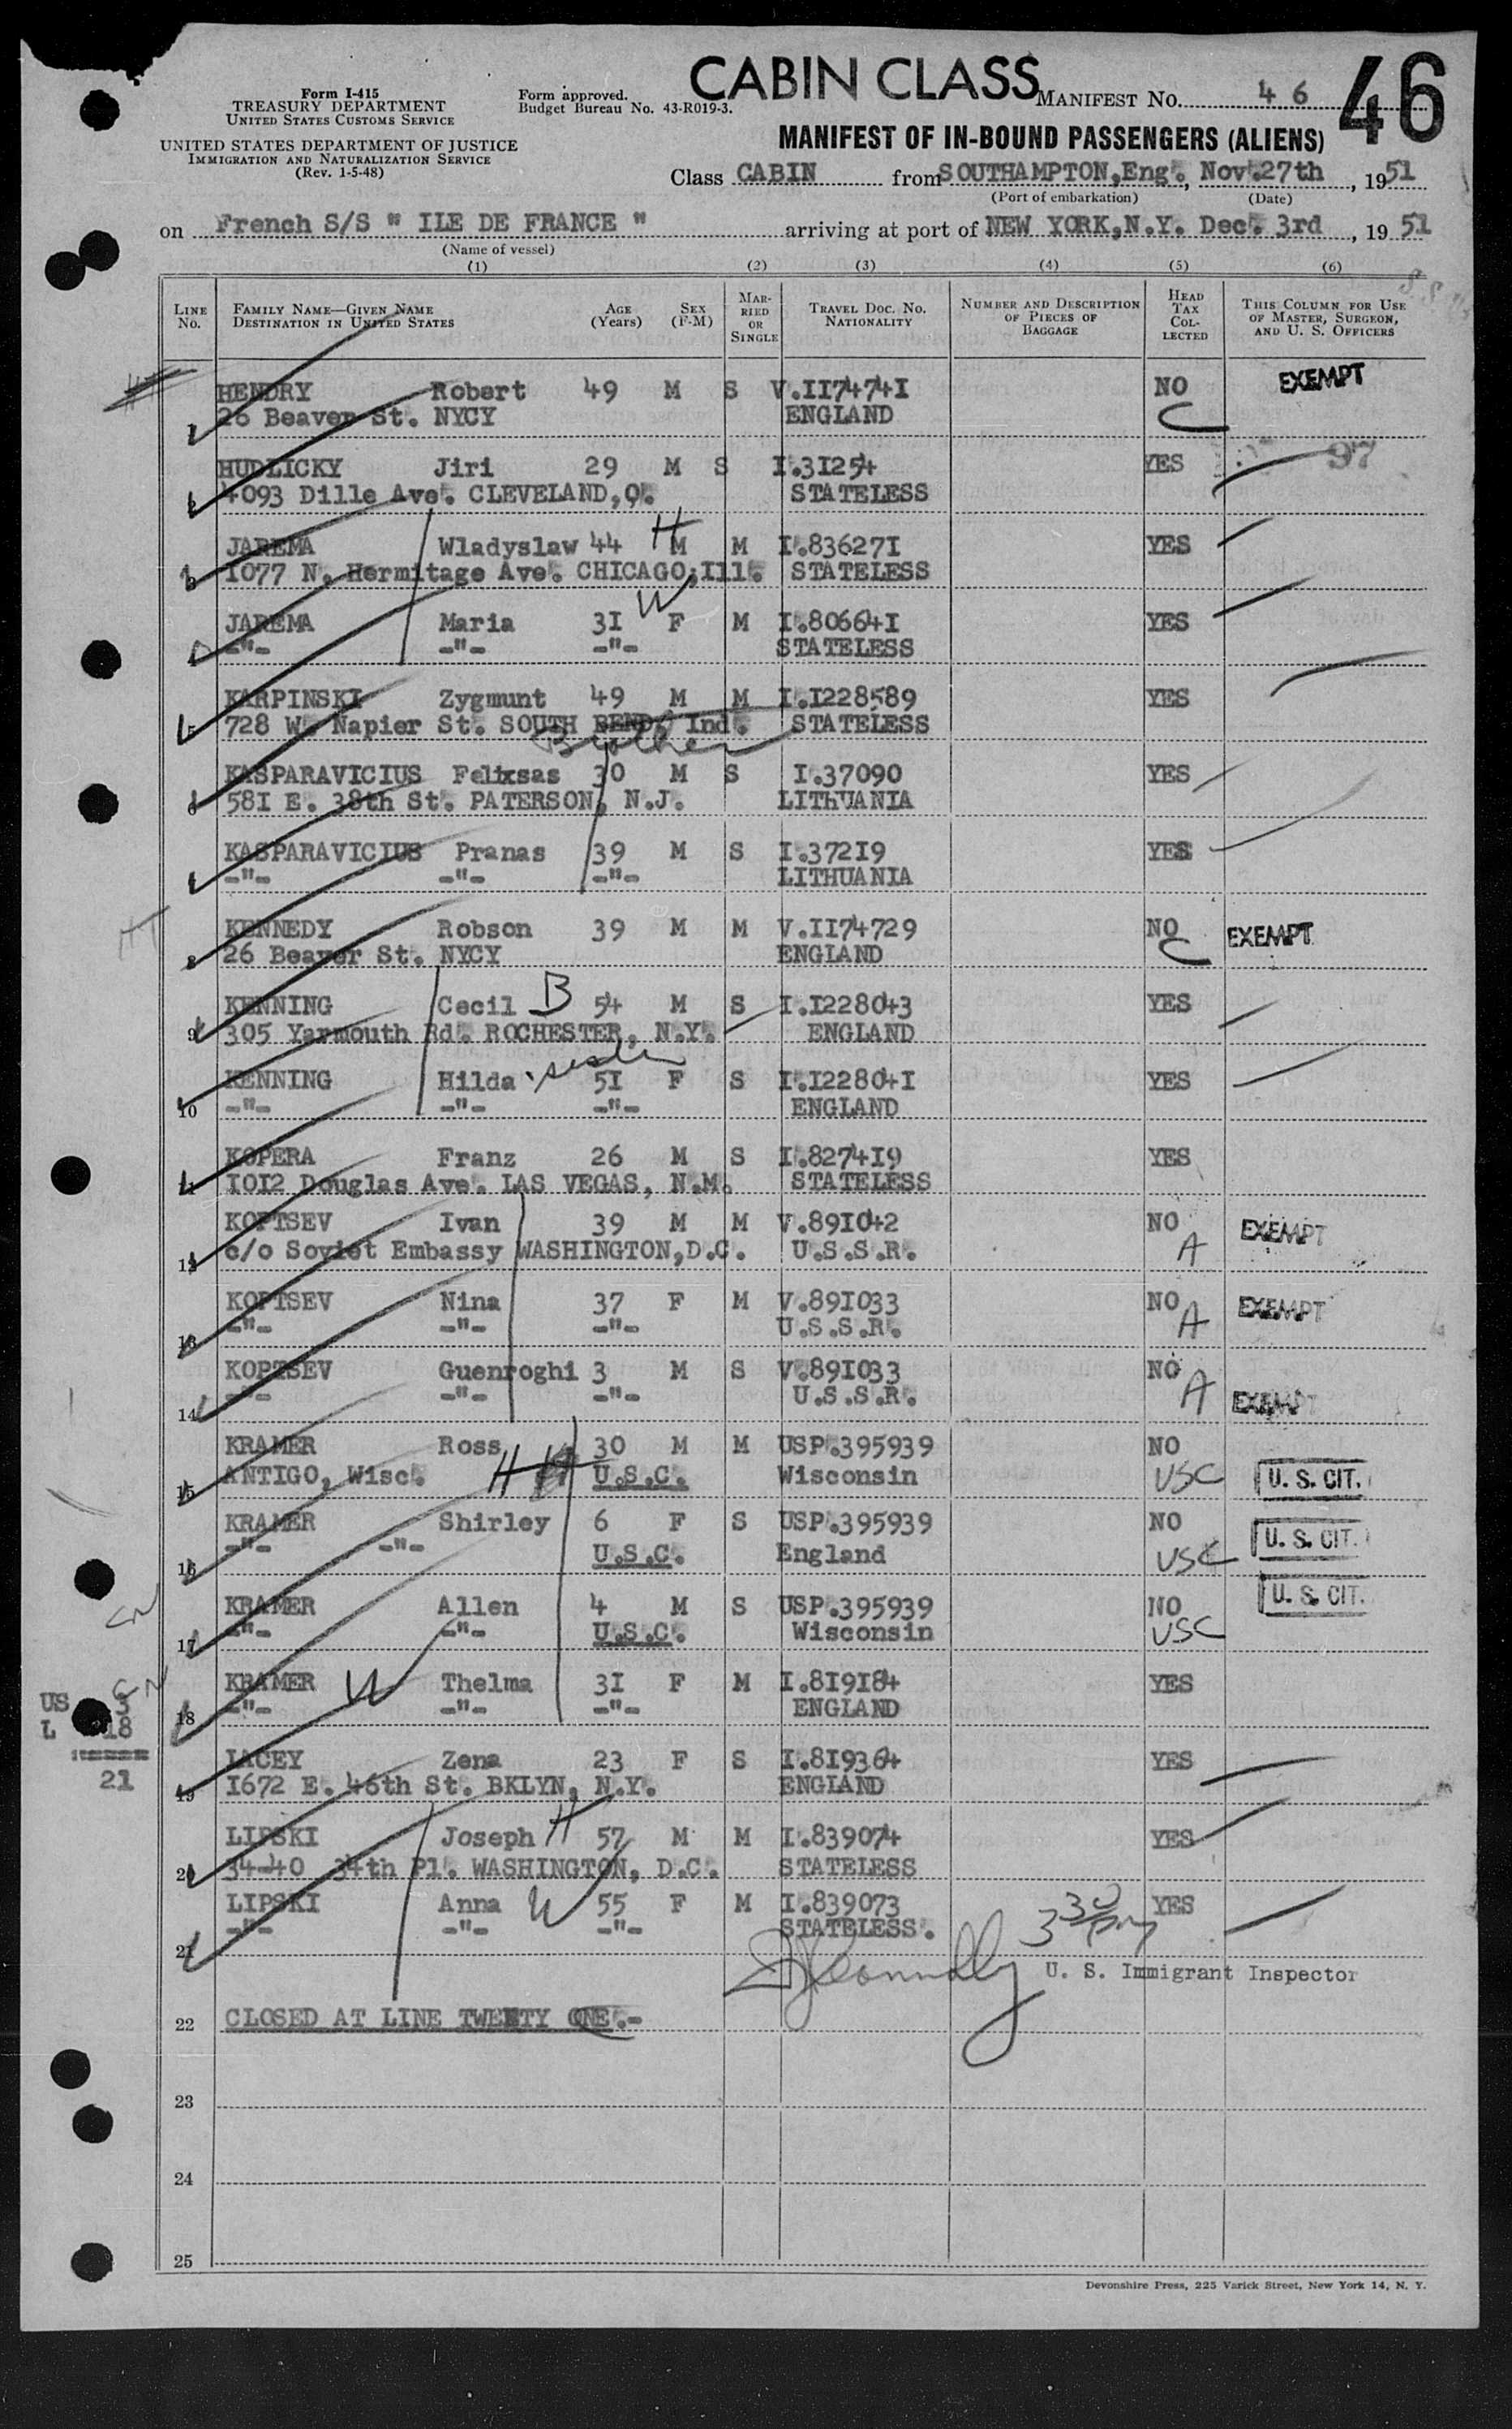 CABIN CLASS
46
Form I-415
TREASURY DEPARTMENT
UNITED STATES CUSTOMS SERVICE
Form approved.
Budget Bureau No. 43-R019-3.
MANIFEST NO. 46
UNITED STATES DEPARTMENT OF JUSTICE
IMMIGRATION AND NATURALIZATION SERVICE
(Rev. 1-5-48)
MANIFEST OF IN-BOUND PASSENGERS (ALIENS)
Class CABIN from SOUTHAMPTON,Eng., Nov.27th, 1951
(Port of embarkation) (Date)
on French S/S " ILE DE FRANCE " arriving at port of NEW YORK,N.Y. Dec. 3rd, 1951
(Name of vessel)
(1) (2) (3) (4) (5) (6)
LINE NO. FAMILY NAME—GIVEN NAME DESTINATION IN UNITED STATES AGE (YEARS) SEX (F-M) MARRIED OR SINGLE TRAVEL DOC. NO. NATIONALITY NUMBER AND DESCRIPTION OF PIECES OF BAGGAGE HEAD TAX COLLECTED THIS COLUMN FOR USE OF MASTER, SURGEON, AND U. S. OFFICERS
HENDRY Robert 49 M S V.II7474I NO EXEMPT
1 26 Beaver St. NYCY ENGLAND C
HUDLICKY Jiri 29 M S I.3I254 YES 97
2 4093 Dille Ave. CLEVELAND,O. STATELESS
JAREMA Wladyslaw 44 H M M I.83627I YES
3 I077 N. Hermitage Ave. CHICAGO,Ill. STATELESS
JAREMA Maria 3I W F M I.80664I YES
-"- -"- -"- STATELESS
KARPINSKI Zygmunt 49 M M I.I228589 YES
5 728 W. Napier St. SOUTH BEND, Ind. STATELESS
Brother
KASPARAVICIUS Felixsas 30 M S I.37090 YES
6 58I E. 38th St. PATERSON, N.J. LITHUANIA
KASPARAVICIUS Pranas 39 M S I.372I9 YES
-"- -"- -"- LITHUANIA
KENNEDY Robson 39 M M V.II74729 NO EXEMPT
8 26 Beaver St. NYCY ENGLAND C
KENNING Cecil B 54 M S I.I228043 YES
9 305 Yarmouth Rd. ROCHESTER, N.Y. ENGLAND
KENNING Hilda sister 5I F S I.I22804I YES
10 -"- -"- -"- ENGLAND
KOPERA Franz 26 M S I.8274I9 YES
11 I0I2 Douglas Ave. LAS VEGAS, N.M. STATELESS
KOPTSEV Ivan 39 M M V.89I042 NO EXEMPT
12 c/o Soviet Embassy WASHINGTON,D.C. U.S.S.R. A
KOPTSEV Nina 37 F M V.89I033 NO EXEMPT
13 -"- -"- -"- U.S.S.R. A
KOPTSEV Guenroghi 3 M S V.89I033 NO
14 -"- -"- -"- U.S.S.R. A EXEMPT
KRAMER Ross 30 M M USP.395939 NO
15 ANTIGO, Wisc. H U.S.C. Wisconsin USC U. S. CIT.
KRAMER Shirley 6 F S USP.395939 NO
16 -"- -"- U.S.C. England USC U. S. CIT.
KRAMER Allen 4 M S USP.395939 NO U. S. CIT.
17 -"- -"- U.S.C. Wisconsin USC
KRAMER W Thelma 3I F M I.8I9I84 YES
18 -"- -"- -"- ENGLAND
US 3
L 18
21
LACEY Zena 23 F S I.8I9364 YES
19 I672 E. 46th St. BKLYN, N.Y. ENGLAND
LIPSKI Joseph H 57 M M I.839074 YES
20 34-40 34th Pl. WASHINGTON, D.C. STATELESS
LIPSKI Anna W 55 F M I.839073 YES
21 -"- -"- -"- STATELESS. 3 30 PM
U. S. Immigrant Inspector
22 CLOSED AT LINE TWENTY ONE.-
23
24
25
Devonshire Press, 225 Varick Street, New York 14, N. Y.